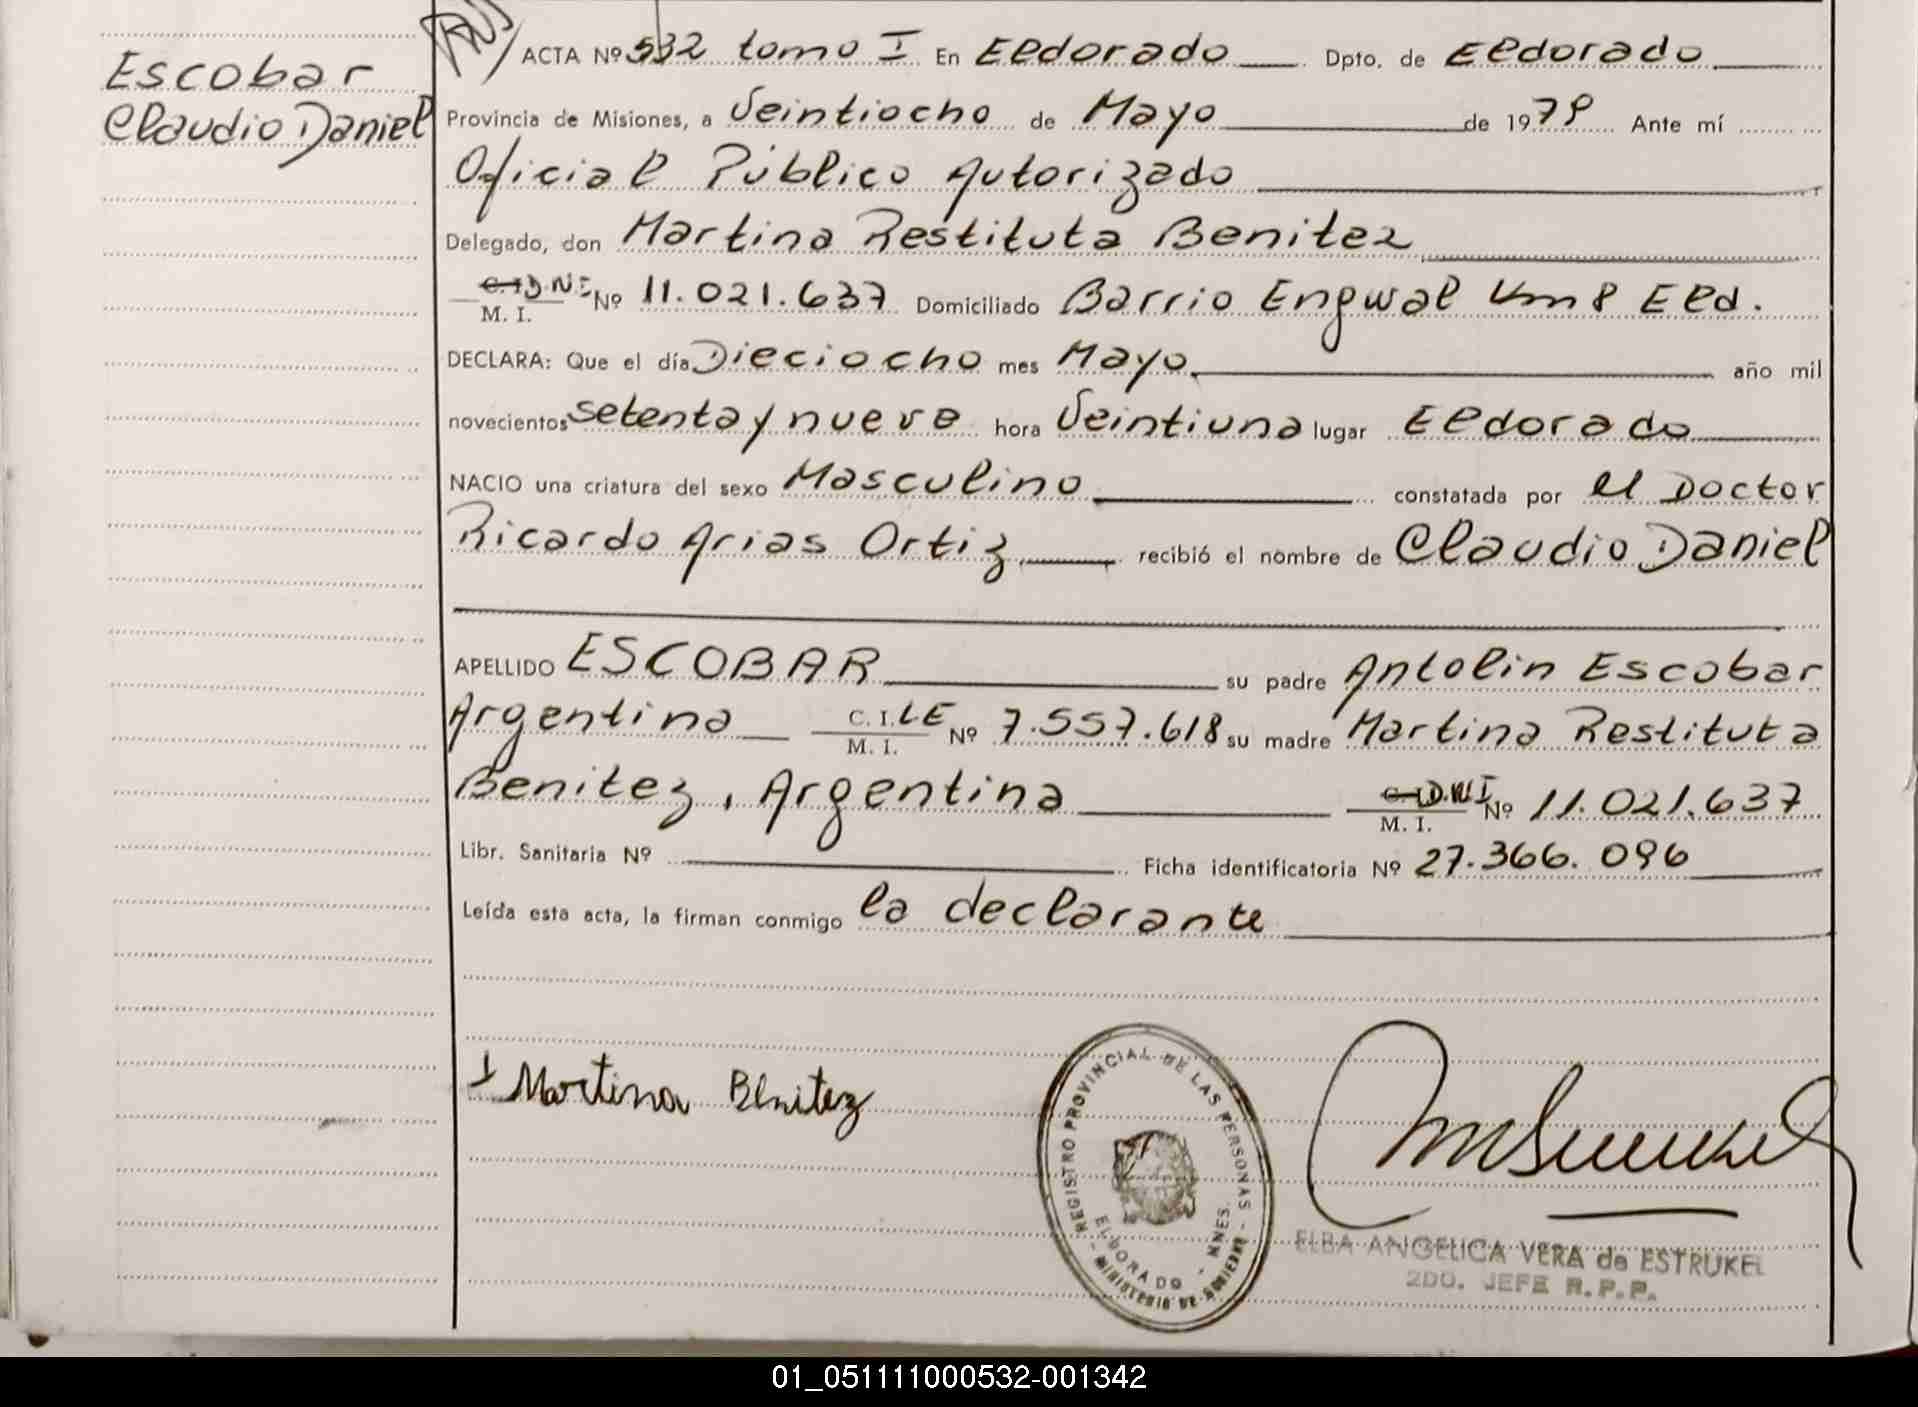 Escobar
Claudio Daniel
ACTA Nº 532 tomo I En Eldorado Dpto. de Eldorado
Provincia de Misiones, a Veintiocho de Mayo de 1979 Ante mí
Oficial Público Autorizado
Delegado, don Martina Restituta Benitez
C.I. D.N.I. Nº 11.021.637 Domiciliado Barrio Engwal Km 8 Eld.
M. I.
DECLARA: Que el día Dieciocho mes Mayo año mil
novecientos setenta y nueve hora Veintiuna lugar Eldorado
NACIO una criatura del sexo Masculino constatada por el Doctor
Ricardo Arias Ortiz recibió el nombre de Claudio Daniel
APELLIDO ESCOBAR su padre Antolin Escobar
Argentina C. I. LE Nº 7.557.618 su madre Martina Restituta
M. I.
Benitez, Argentina C.I. D.N.I. Nº 11.021.637
M. I.
Libr. Sanitaria Nº Ficha identificatoria Nº 27.366.096
Leída esta acta, la firman conmigo la declarante
Martina Benitez
REGISTRO PROVINCIAL DE LAS PERSONAS
ELDORADO - MNES.
MINISTERIO DE GOBIERNO
ELBA ANGELICA VERA de ESTRUKEL
2DO. JEFE R.P.P.
01_051111000532-001342